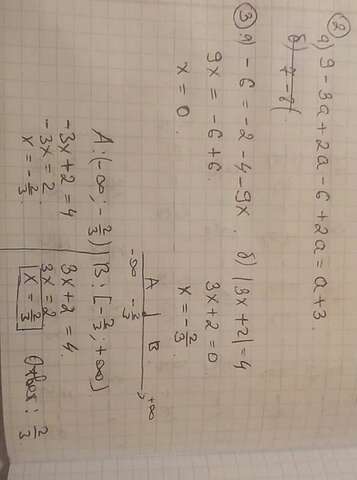 ②
а) 9 - 3a + 2a - 6 + 2a = a + 3.
б) 7 - 8(
③ а) - 6 = - 2 - 4 - 9x.
9x = - 6 + 6.
x = 0.
б) |3x + 2| = 4
3x + 2 = 0.
x = - 2/3.
A B
-∞ - 2/3 +∞
A: (-∞; - 2/3)
-3x + 2 = 4
-3x = 2.
x = - 2/3.
B: [- 2/3; +∞)
3x + 2 = 4.
3x = 2
x = 2/3
Ответ: 2/3